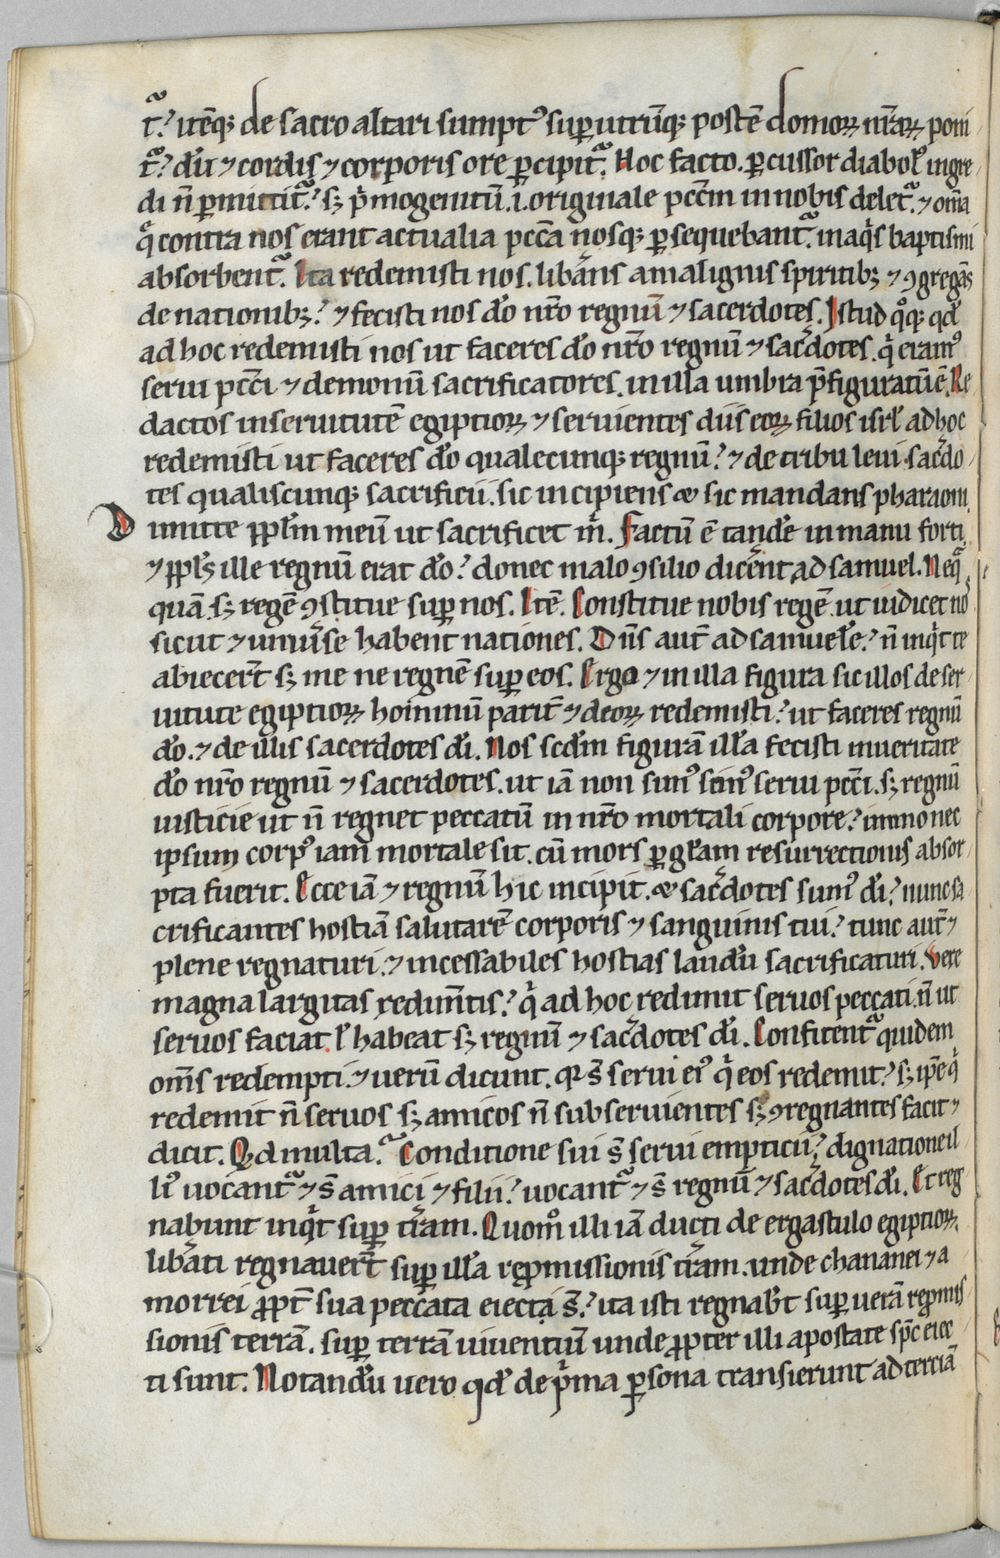 tᷓ. itēq; de sacro altari sumpt᷒ sup utrūq; postē domoꝝ nr̄aꝝ poni
tᷓ. dū ⁊ cordis ⁊ corporis ore ꝑcipitᷓ. Hoc facto. ꝑcussor diabol᷒ ingre
di n̄ ꝑmittitᷓ. sꝫ p̍mogenitū .i. originale pccm̄ in nobis deletᷓ. ⁊ om̄a
q̍ contra nos erant actualia pcc̄a nosq; ꝑsequebantᷓ. in aq̍s baptismi
absorbentᷓ. Ita redemisti nos. libans̄ a malignis spiritibꝫ ⁊ ꝯgregans̄
de nationibꝫ. ⁊ fecisti nos dō nr̄o regnū ⁊ sacerdotes. Istud qͦq; qd̄
ad hoc redemisti nos ut faceres dō nr̄o regnū ⁊ sac̄dotes. q̍ eram᷒
serui pcc̄i ⁊ demonū sacrificatores. in illa umbra p̄figuratū ē. Re
dactos in seruitutē egiptioꝝ ⁊ seruientes diis eoꝝ filios isrl̄ ad hoc
redemisti ut faceres dō qualecunq; regnū. ⁊ de tribu leui sac̄do
tes qualiscunq; sacrificii. sic incipiens ⁊ sic mandans pharaoni.
Dimitte ppl̄m meū ut sacrificet m̍. Factū ē tandē in manu forti
⁊ ppl̄s ille regnū erat dō. donec malo ꝯsilio dicer̄nt ad samuel. Neq̄
quā. sꝫ regē ꝯstitue sup nos. Itē. Constitue nobis regē. ut iudicet nos
sicut ⁊ uniuer̄se habent nationes. Dn̄s aut̄ ad samuelē. n̄ inq̍t te
abiecer̄t sꝫ me ne regnē sup eos. Ergo ⁊ in illa figura sic illos de ser
uitute egiptioꝝ hominū parit̄ ⁊ deoꝝ redemisti. ut faceres regnū
dō. ⁊ de illis sacerdotes dī. Nos scdm̄ figurā illā fecisti in ueritate
dō nr̄o regnū ⁊ sacerdotes. ut iā non sim᷒ serui pcc̄i. sꝫ regnū
iusticie ut n̄ regnet peccatū in nr̄o mortali corpore. immo nec
ipsum corp᷒ iam mortale sit. cū mors ꝑ grām resurrectionis absor
pta fuerit. Ecce iā ⁊ regnū hic incipit. ⁊ sac̄dotes sum᷒ dī. nunc sa
crificantes hostiā salutarē corporis ⁊ sanguinis tui. tunc aut̄ ⁊
plene regnaturi. ⁊ incessabiles hostias laudū sacrificaturi. Vere
magna largitas redimentis. q̍ ad hoc redimit seruos peccati. n̄ ut
seruos faciat l̄ habeat sꝫ regnū ⁊ sac̄dotes dī. Confitentᷓ quidem
om̄s redempti. ⁊ uerū dicunt. qr s̄ serui ei᷒ q̍ eos redemit. sꝫ ip̄e q̍
redemit n̄ seruos sꝫ amicos n̄ subseruientes sꝫ ꝯregnantes facit ⁊
dicit. Qd multaᷓ Conditione sui s̄ serui empticii. dignatione il
li᷒ uocantᷓ ⁊ s̄ amici ⁊ filii. uocantᷓ ⁊ s̄ regnū ⁊ sac̄dotes dī. Et reg
nabunt inq̍t sup tr̄am. Quomͦ illi iā ducti de ergastulo egiptioꝝ
libati regnauer̄t sup illā repmissionis tr̄am. unde chananei ⁊ a
morrei ꝓpt̄ sua peccata eiecti s̄. ita isti regnabt̄ sup uerā repmis
sionis terrā. sup terrā uiuentiū unde ꝓpter illi apostate sp̄c eiec
ti sunt. Notandū uero qd̄ de p̍ma ꝑsona transierunt ad terciā